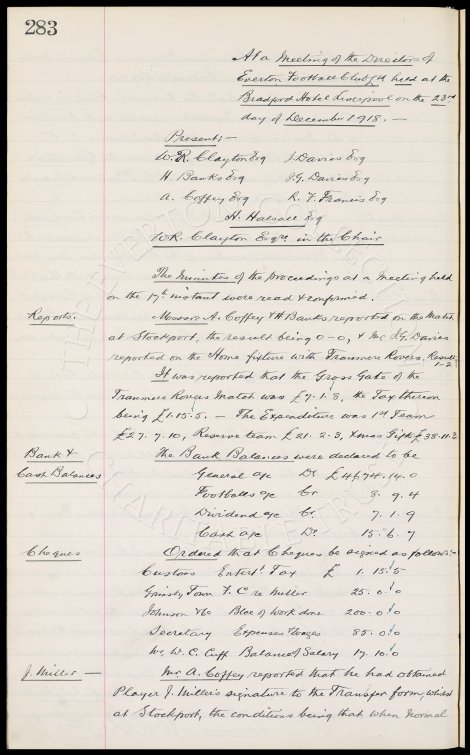 283
At a Meeting of the Directors of
Everton Football Club Ltd held at the
Bradford Hotel Liverpool on the 23rd
day of December 1918. —
Present:—
W.R. Clayton Esq J. Davies Esq
H. Banks Esq J.G. Davies Esq
A. Coffey Esq R. F. Francis Esq
H. Halsall Esq
W.R. Clayton Esqre in the Chair
The Minutes of the proceedings at a Meeting held
on the 17th instant were read & confirmed.
Reports. Messrs A. Coffey & H Banks reported on the Match
at Stockport, the result being 0-0, & Mr J.G. Davies
reported on the Home fixture with Tranmere Rovers, Result 1-2.
It was reported that the Gross Gate of the
Tranmere Rovers Match was £7.1.8, the Tax thereon
being £1.15.5. — The Expenditure was 1st Team
£27.7.10, Reserve team £21.2.3, Xmas Gifts £38.11.3
Bank & The Bank Balances were declared to be
Cash Balances General a/c Dr £4674.14.0
Footballs a/c Cr 3.9.4
Dividend a/c Cr 7.1.9
Cash a/c Dr 15.6.7
Cheques Ordered that Cheques be signed as follows:—
Customs Entert. Tax £ 1.15.5
Grimsby Town F.C re Miller 25.0.0
Johnson &Co Blce of Work done 200.0.0
Secretary Expenses & Wages 85.0.0
Mr W.C. Cuff Balance of Salary 17.10.0
J. Miller — Mr A. Coffey reported that he had obtained
Player J. Miller's signature to the Transfer form, whilst
at Stockport, the conditions being that when normal
THE EVERTON COLLECTION
CHARITABLE TRUST